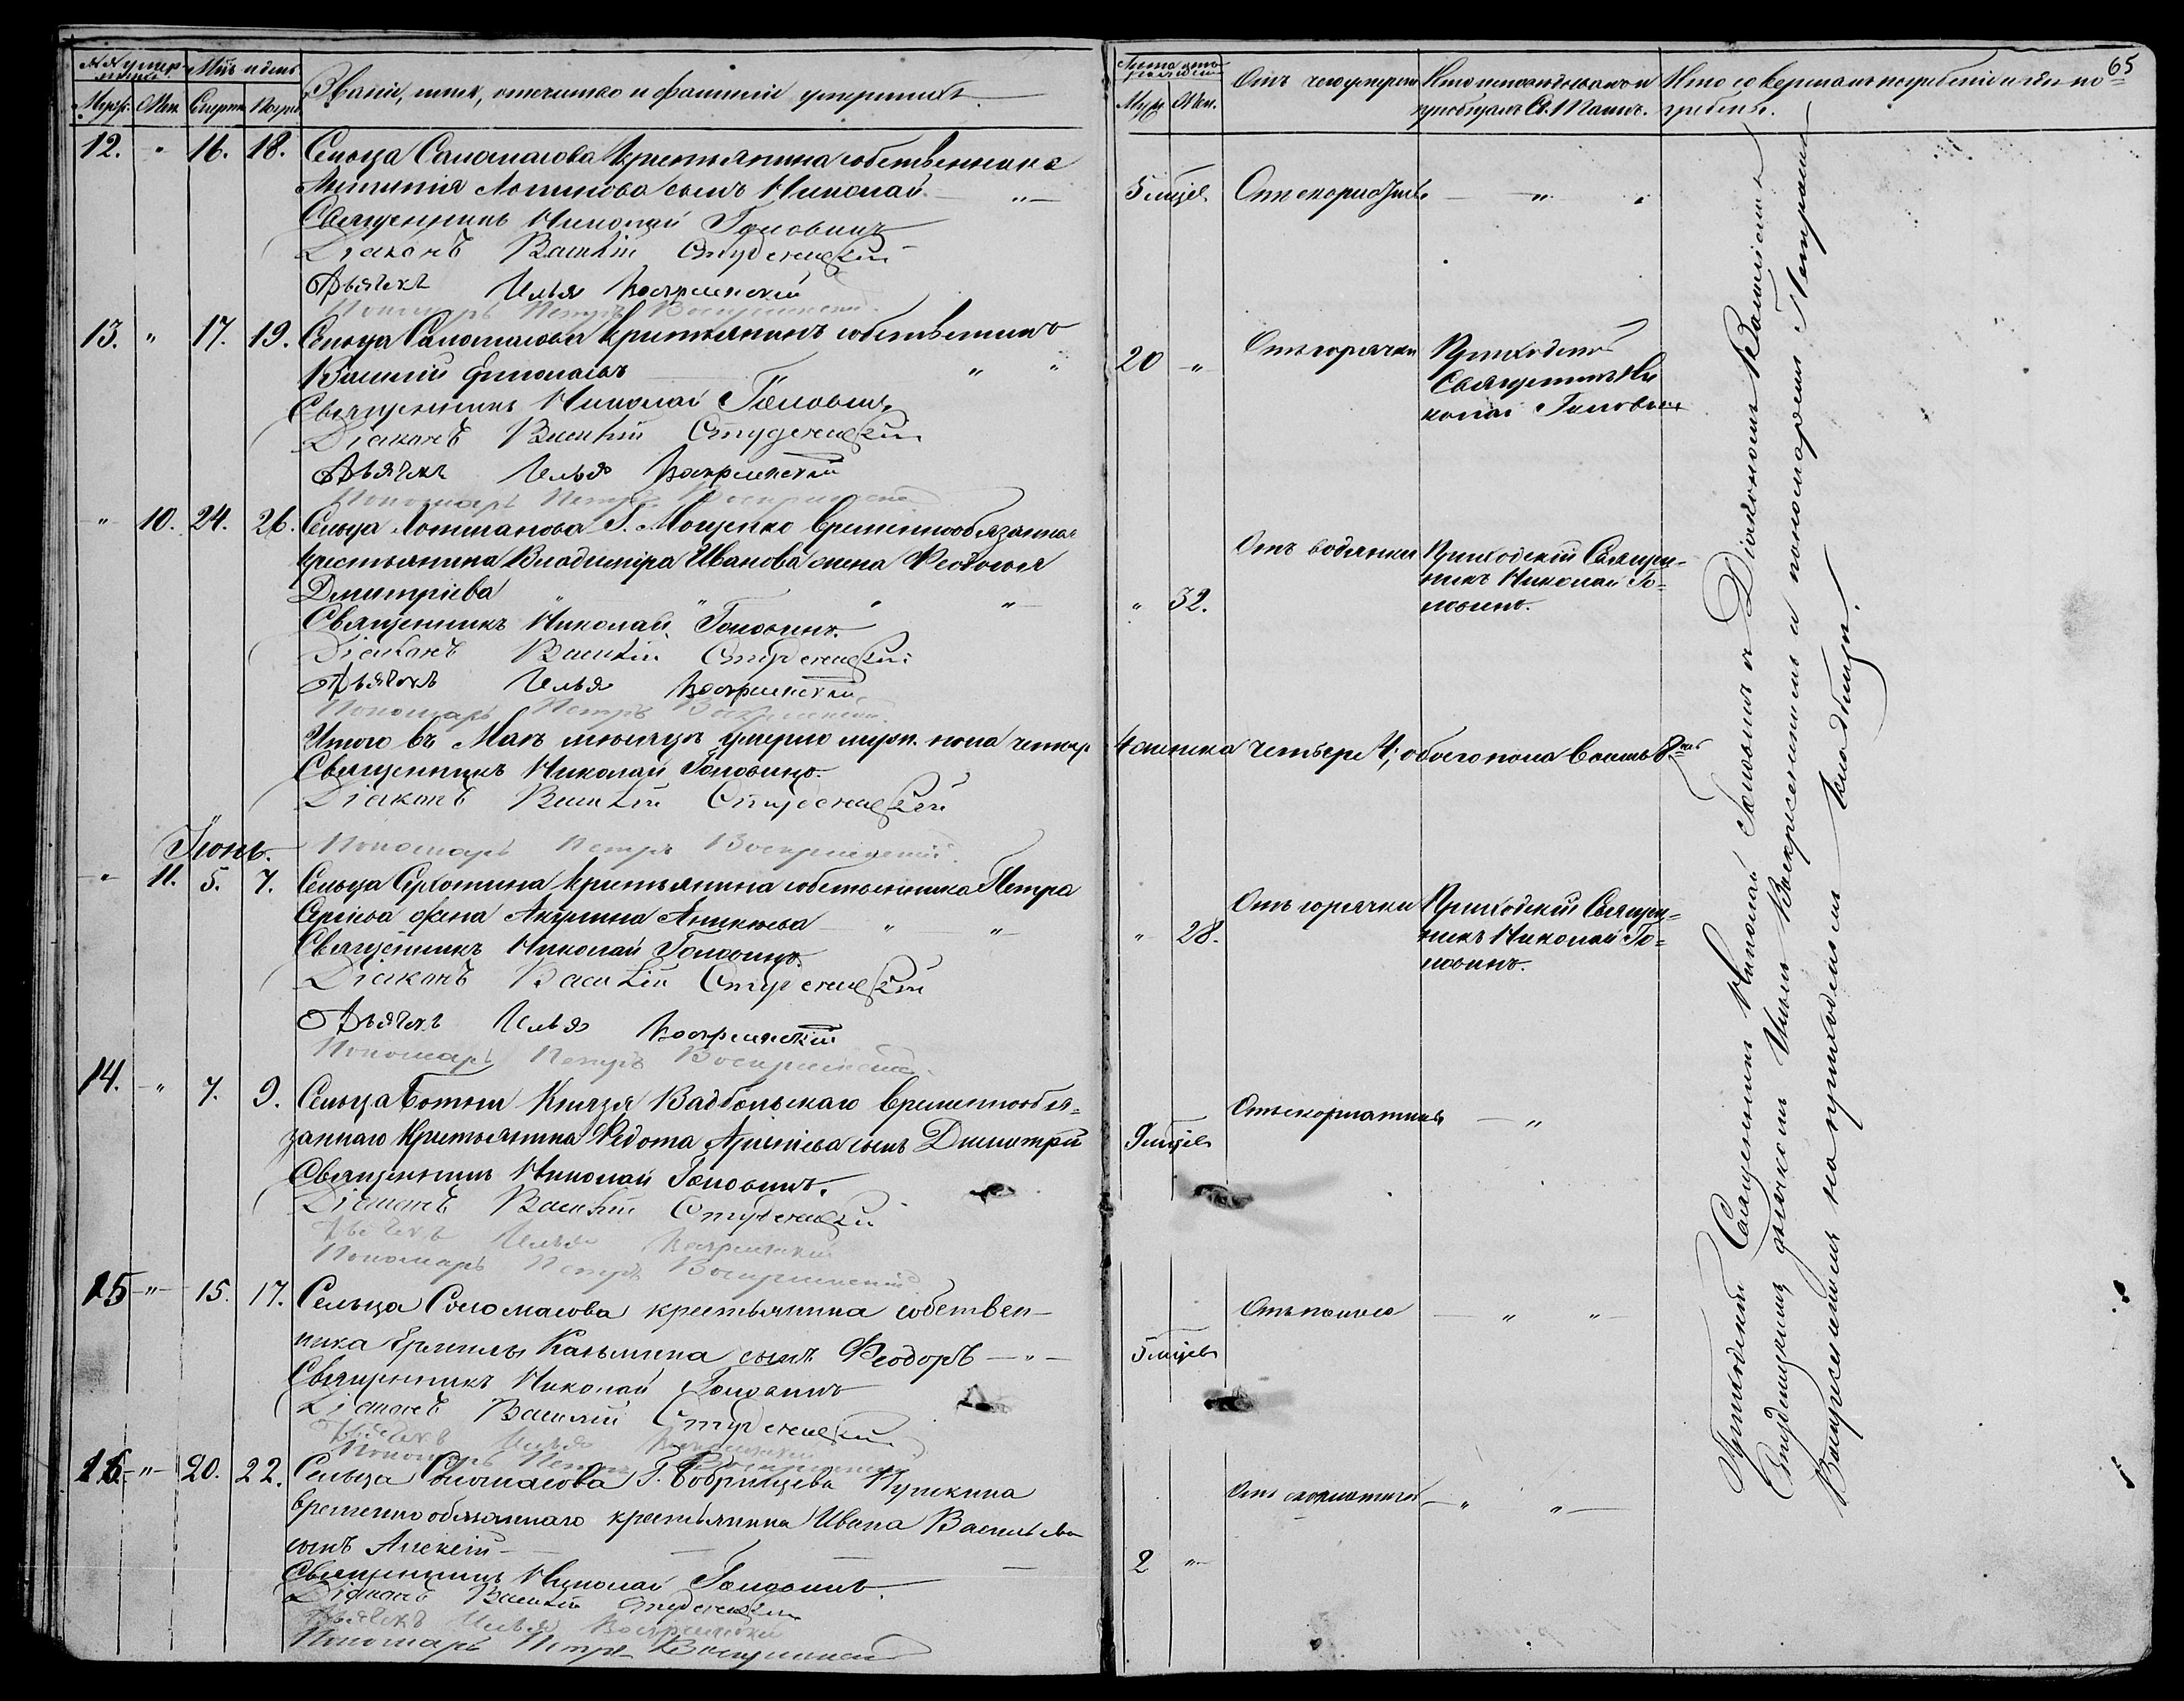 №№ умер-
ших.
Мѣс. и день
Муж.
Жен.
Смерти
Погреб.
Званіе, имя, отечество и фамилія умершихъ.
12. " 16. 18. Сельца Соломасова крестьянина собственника
Логинова сынъ Николай
Священникъ Николай Головинъ
Діаконъ Василій Студенецкій
Дьячекъ Илья Воскресенскій
Пономарь Петръ Воскресенскій
13. " 17. 19. Сельца Соломасова крестьянинъ собственникъ
Василій
Священникъ Николай Головинъ
Діаконъ Василій Студенецкій
Дьячекъ Илья Воскресенскій
Пономарь Петръ Воскресенскій
" 10. 24. 26. Сельца Г. временнообязаннаго
крестьянина Владиміра Иванова жена Феодосія
Дмитріева
Священникъ Николай Головинъ
Діаконъ Василій Студенецкій
Дьячекъ Илья Воскресенскій
Пономарь Петръ Воскресенскій
Итого въ Маѣ мѣсяцѣ умерло муж. пола четыре
Священникъ Николай Головинъ
Діаконъ Василій Студенецкій
Пономарь Петръ Воскресенскій
Іюнь.
" 11. 5. 7. Сельца крестьянина собственника Петра
Сергіева жена Акулина Аникіева
Священникъ Николай Головинъ
Діаконъ Василій Студенецкій
Дьячекъ Илья Воскресенскій
Пономарь Петръ Воскресенскій
14. " 7. 9. Сельца Князя Вадбольскаго временнообя-
заннаго крестьянина Федота сынъ Димитрій
Священникъ Николай Головинъ
Діаконъ Василій Студенецкій
Дьячекъ Илья Воскресенскій
Пономарь Петръ Воскресенскій
15 " 15. 17. Сельца Соломасова крестьянина собствен-
ника Ермилы Казьмина сынъ Феодоръ
Священникъ Николай Головинъ
Діаконъ Василій Студенецкій
Дьячекъ Илья Воскресенскій
Пономарь Петръ Воскресенскій
16 " 20. 22. Сельца Соломасова Г. Бобрищева Пушкина
временнообязаннаго крестьянина Ивана Васильева
сынъ Алексѣй
Священникъ Николай Головинъ
Діаконъ Василій Студенецкій
Дьячекъ Илья Воскресенскій
Пономарь Петръ Воскресенскій
65
Лѣта умершихъ
Муж.
Жен.
Отъ чего умеръ
Кто исповѣдывалъ и
пріобщалъ Св. Таинъ.
Кто совершалъ погребеніе и гдѣ по-
гребены.
5 мѣсяц. Отъ скорлатины
20 " Отъ горячки Приходскій
Священникъ Ни
колай Головинъ
" 32. Отъ водянки Приходскій Священ-
никъ Николай Го-
ловинъ.
4 женска четыре 4, обоего пола восемь 8
" 28. Отъ горячки Приходскій Священ-
никъ Николай Го-
ловинъ.
9 мѣсяц. Отъ скорлатины
5 мѣсяц. Отъ поноса
2 " Отъ скорлатины
Приходскій Священникъ Николай Головинъ съ Діакономъ Василіемъ
Студенецкимъ дьячкомъ Ильею Воскресенскимъ и пономаремъ Петромъ
Воскресенскимъ на приходскомъ кладбищѣ.